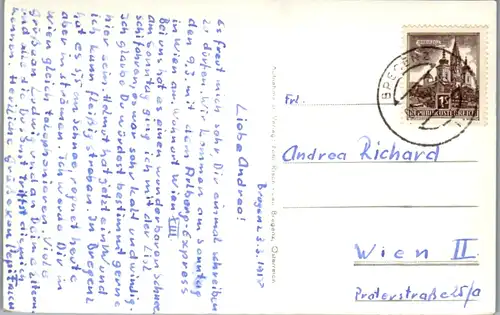 Liebe Andrea!
Bregenz
Es freut mich sehr Dir einmal schreiben
zu dürfen. Wir kommen am Sonntag
den 9.3. mit dem Arlberg-Express
in Wien an. Wohnort Wien XIII
Bei uns hat es einen wunderbaren Schnee.
Am Sonntag ging ich mit der Lisl
schifahren, es war sehr kalt und windig.
Ich glaube Du würdest bestimmt gerne
hier sein. Helmut hat jetzt ein
ich kann fleißig streben. In Bregenz
hat es Schnee, regnet heute
aber in strömen. Ich werde Dir in
Wien gleich telephonieren. Viele
Grüße an Ludwig und an Deine Eltern
und alle die Du
kennen. Herzliche Grüße von
Frl.
Andrea Richard
Wien II
Praterstraße 25/a
BREGENZ
REPUBLIK ÖSTERREICH